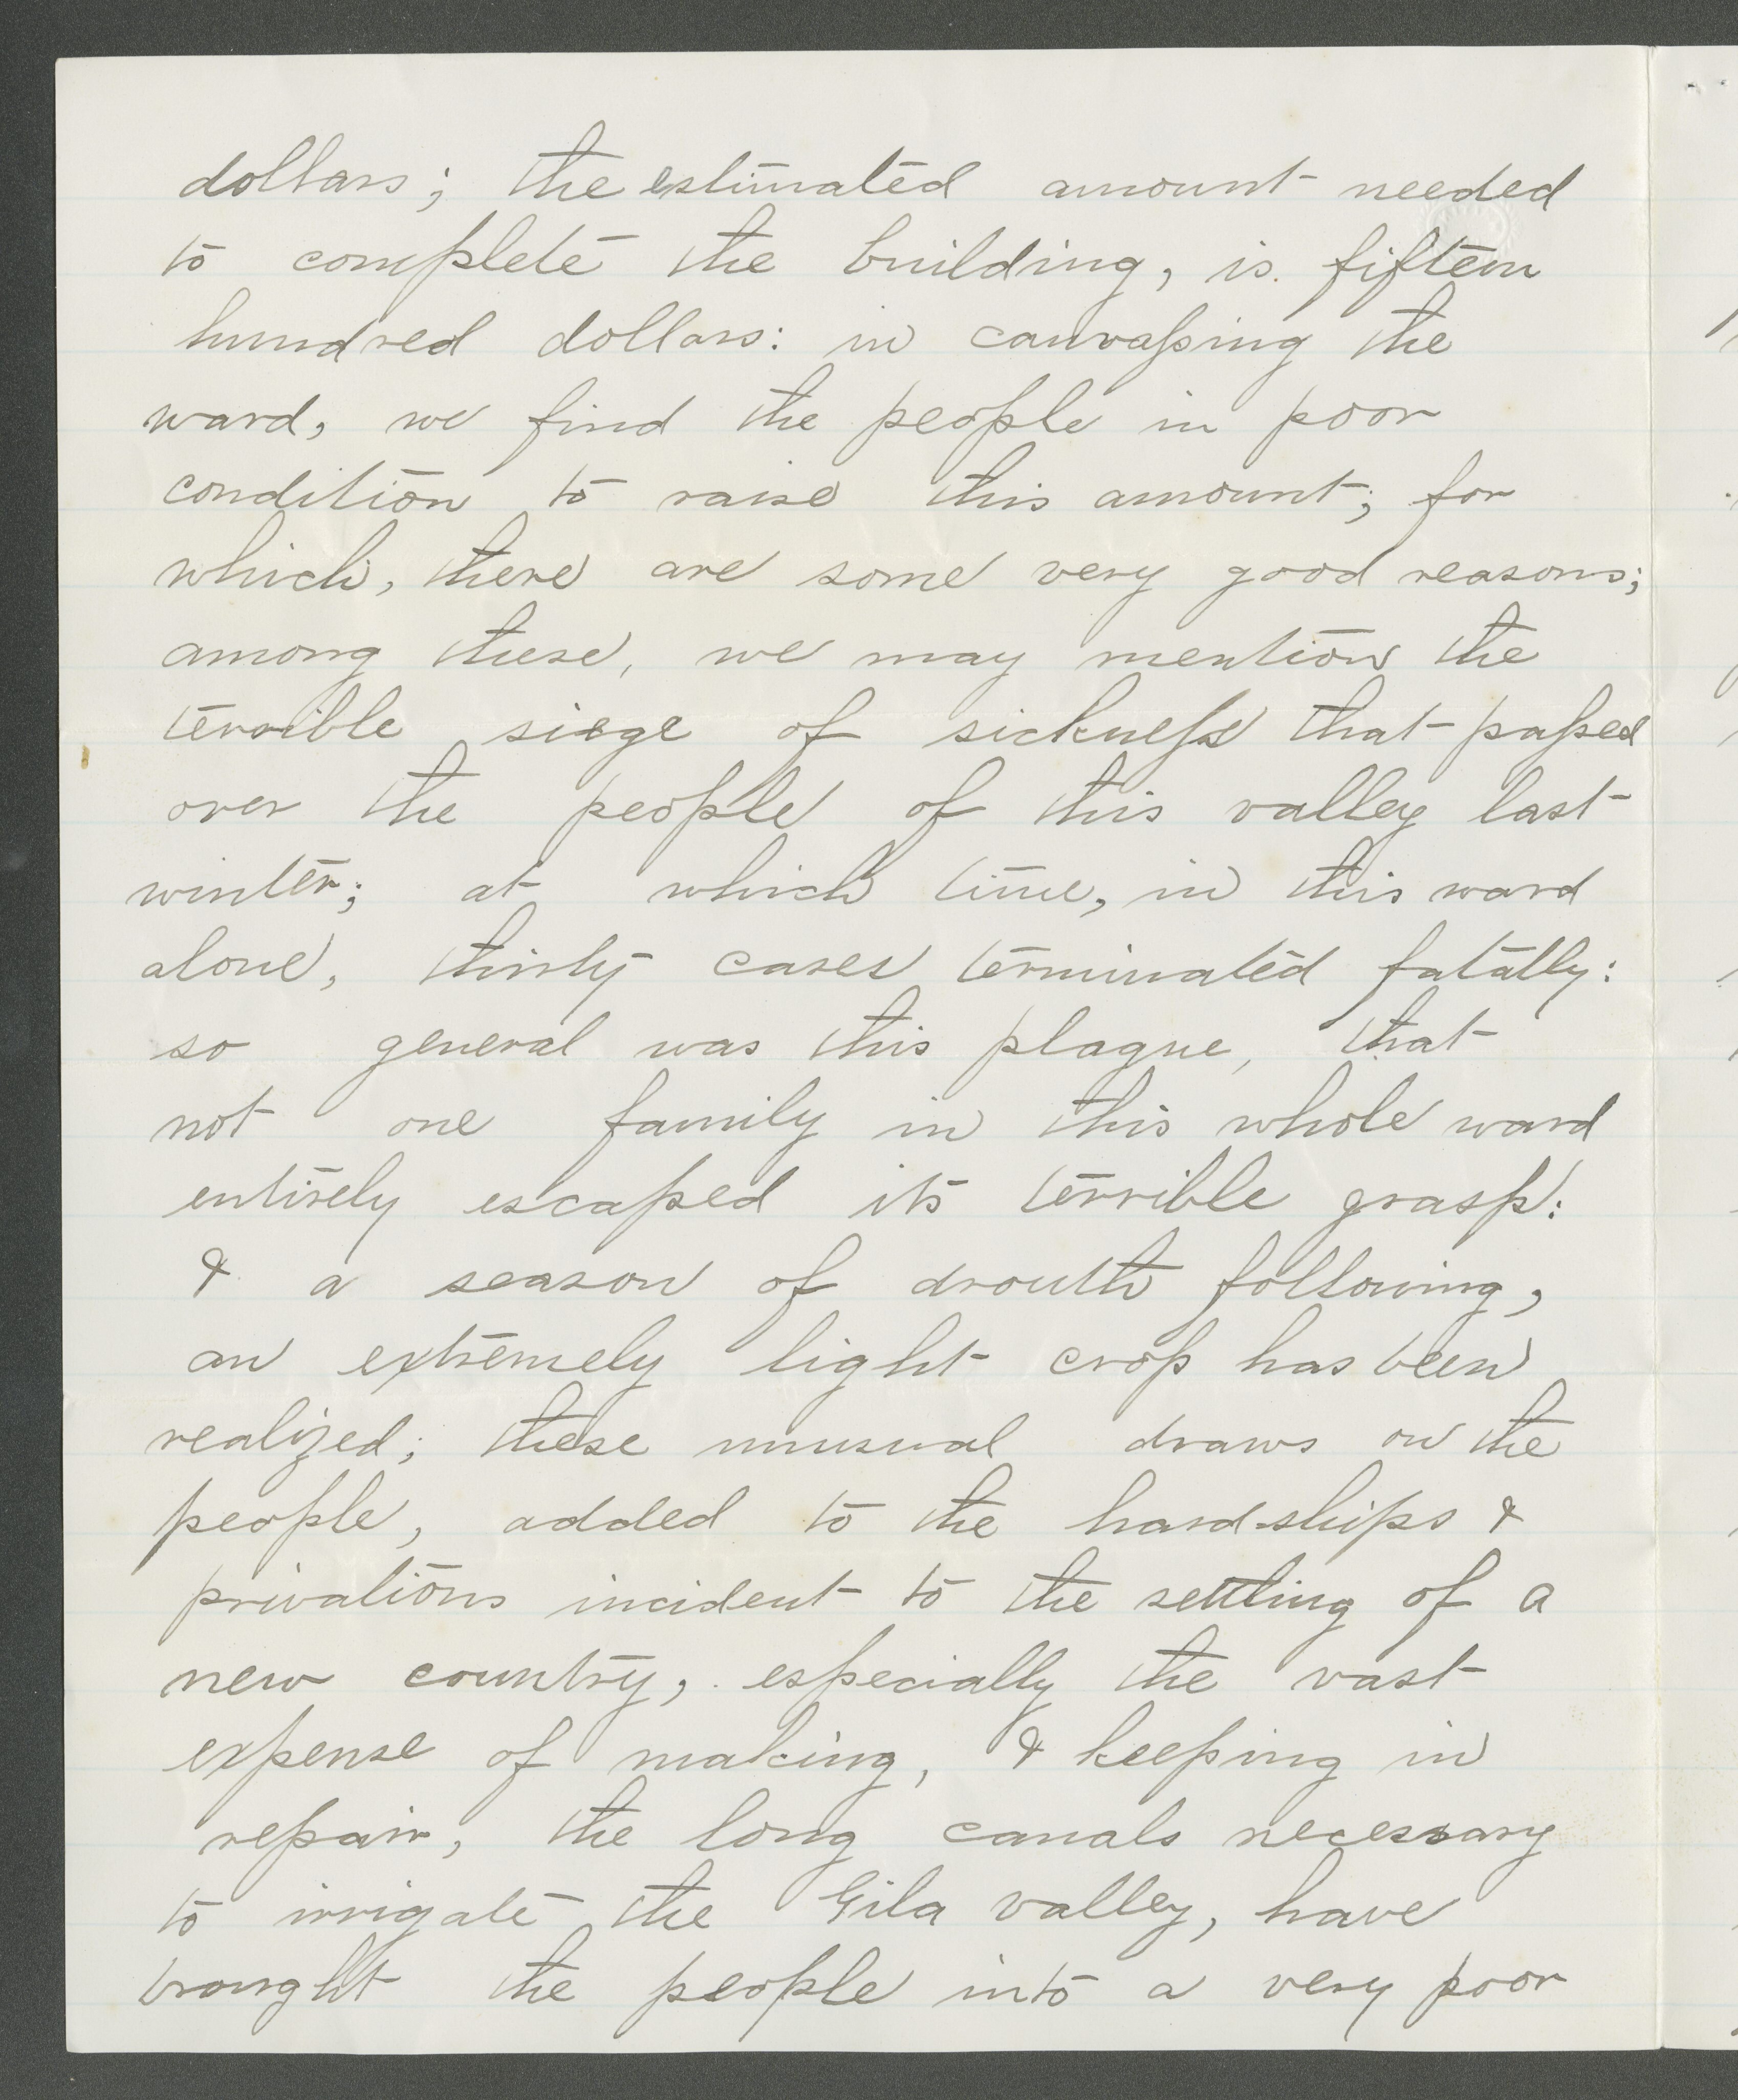 dollars; the estimated amount needed
to complete the building, is fifteen
hundred dollars: in canvassing the
ward, we find the people in poor
condition to raise this amount; for
which, there are some very good reasons;
among these, we may mention the
terrible siege of sickness that passed
over the people of this valley last
winter; at which time, in this ward
alone, thirty cases terminated fatally:
so general was this plague, that
not one family in this whole ward
entirely escaped its terrible grasp:
& a season of drouth following,
an extremely light crop has been
realized; these unusual draws on the
people, added to the hard-ships &
privations incident to the settling of a
new country, especially the vast
expense of making, & keeping in
repair, the long canals necessary
to irrigate the Gila valley, have
brought the people into a very poor